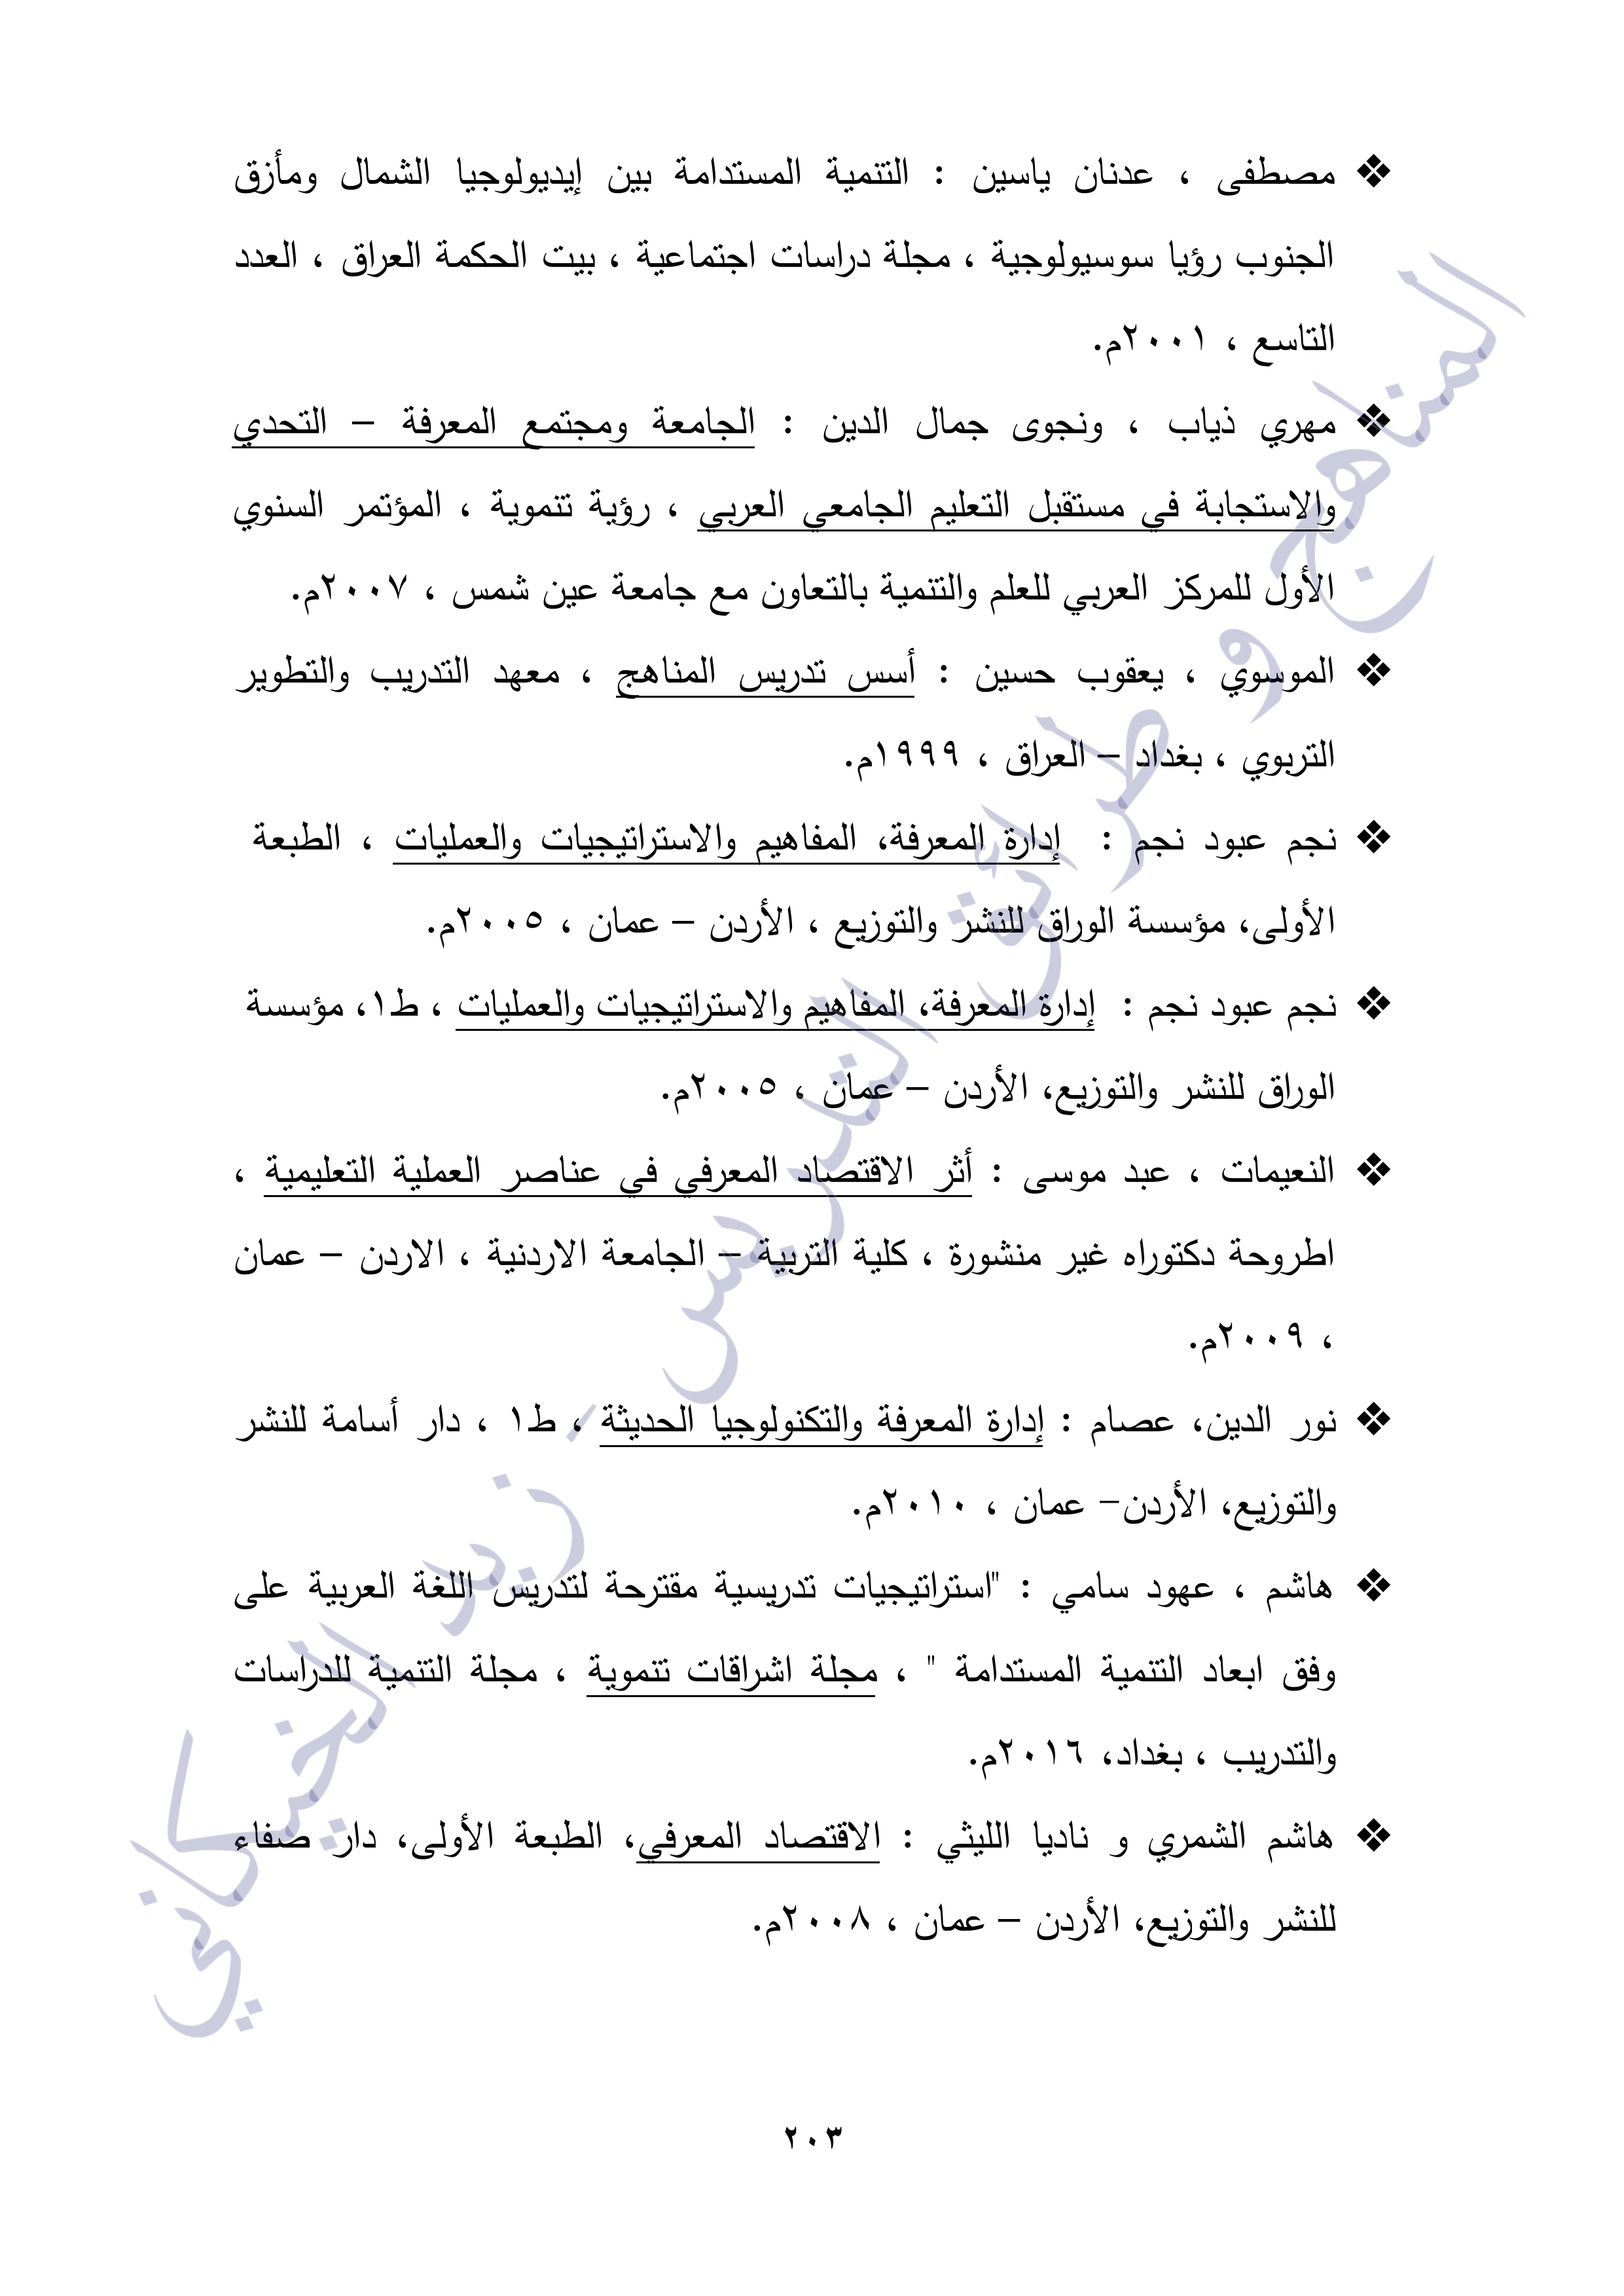 ❖ مصطفى ، عدنان ياسين : التنمية المستدامة بين إيديولوجيا الشمال ومأزق
الجنوب رؤيا سوسيولوجية ، مجلة دراسات اجتماعية ، بيت الحكمة العراق ، العدد
التاسع ، ٢٠٠١م.
❖ مهري ذياب ، ونجوى جمال الدين : الجامعة ومجتمع المعرفة – التحدي
والاستجابة في مستقبل التعليم الجامعي العربي ، رؤية تنموية ، المؤتمر السنوي
الأول للمركز العربي للعلم والتنمية بالتعاون مع جامعة عين شمس ، ٢٠٠٧م.
❖ الموسوي ، يعقوب حسين : أسس تدريس المناهج ، معهد التدريب والتطوير
التربوي ، بغداد – العراق ، ١٩٩٩م.
❖ نجم عبود نجم : إدارة المعرفة، المفاهيم والاستراتيجيات والعمليات ، الطبعة
الأولى، مؤسسة الوراق للنشر والتوزيع ، الأردن – عمان ، ٢٠٠٥م.
❖ نجم عبود نجم : إدارة المعرفة، المفاهيم والاستراتيجيات والعمليات ، ط١، مؤسسة
الوراق للنشر والتوزيع، الأردن – عمان ، ٢٠٠٥م.
❖ النعيمات ، عبد موسى : أثر الاقتصاد المعرفي في عناصر العملية التعليمية ،
اطروحة دكتوراه غير منشورة ، كلية التربية – الجامعة الاردنية ، الاردن – عمان
، ٢٠٠٩م.
❖ نور الدين، عصام : إدارة المعرفة والتكنولوجيا الحديثة ، ط١ ، دار أسامة للنشر
والتوزيع، الأردن– عمان ، ٢٠١٠م.
❖ هاشم ، عهود سامي : "استراتيجيات تدريسية مقترحة لتدريس اللغة العربية على
وفق ابعاد التنمية المستدامة " ، مجلة اشراقات تنموية ، مجلة التنمية للدراسات
والتدريب ، بغداد، ٢٠١٦م.
❖ هاشم الشمري و ناديا الليثي : الاقتصاد المعرفي، الطبعة الأولى، دار صفاء
للنشر والتوزيع، الأردن – عمان ، ٢٠٠٨م.
المناهج و طرائق التدريس - زيد الخيكاني
٢٠٣